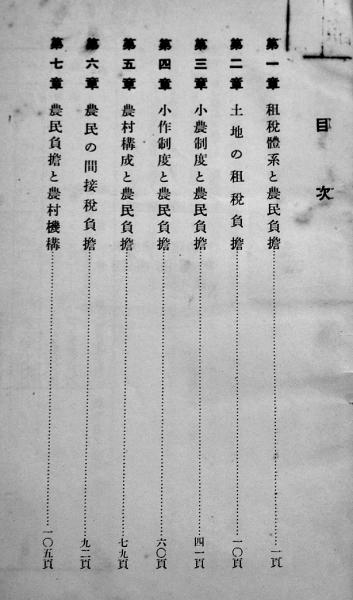 目次
第一章 租税體系と農民負擔……一頁
第二章 土地の租税負擔……一〇頁
第三章 小農制度と農民負擔……四一頁
第四章 小作制度と農民負擔……六〇頁
第五章 農村構成と農民負擔……七九頁
第六章 農民の間接税負擔……九二頁
第七章 農民負擔と農村機構……一〇五頁